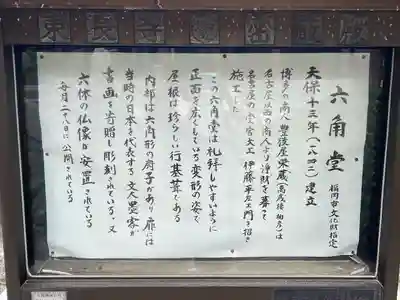 東長寺
六角堂
福岡市文化財指定
天保十三年(一八四二)建立
博多の商人豊後屋栄蔵(高成後柏彦)は
名古屋以西の商人より浄財を募って
名古屋の堂宮大工伊藤平左ェ門を招き
施工した
この六角堂は礼拝しやすいように
正面を広くしている変形の姿で
屋根は珍らしい行基葺である
内部は六角形の厨子があり扉には
当時の日本を代表する文人墨客が
書画を寄贈し彫刻されている。又
六体の仏像が安置されている
毎月二十八日に公開されている